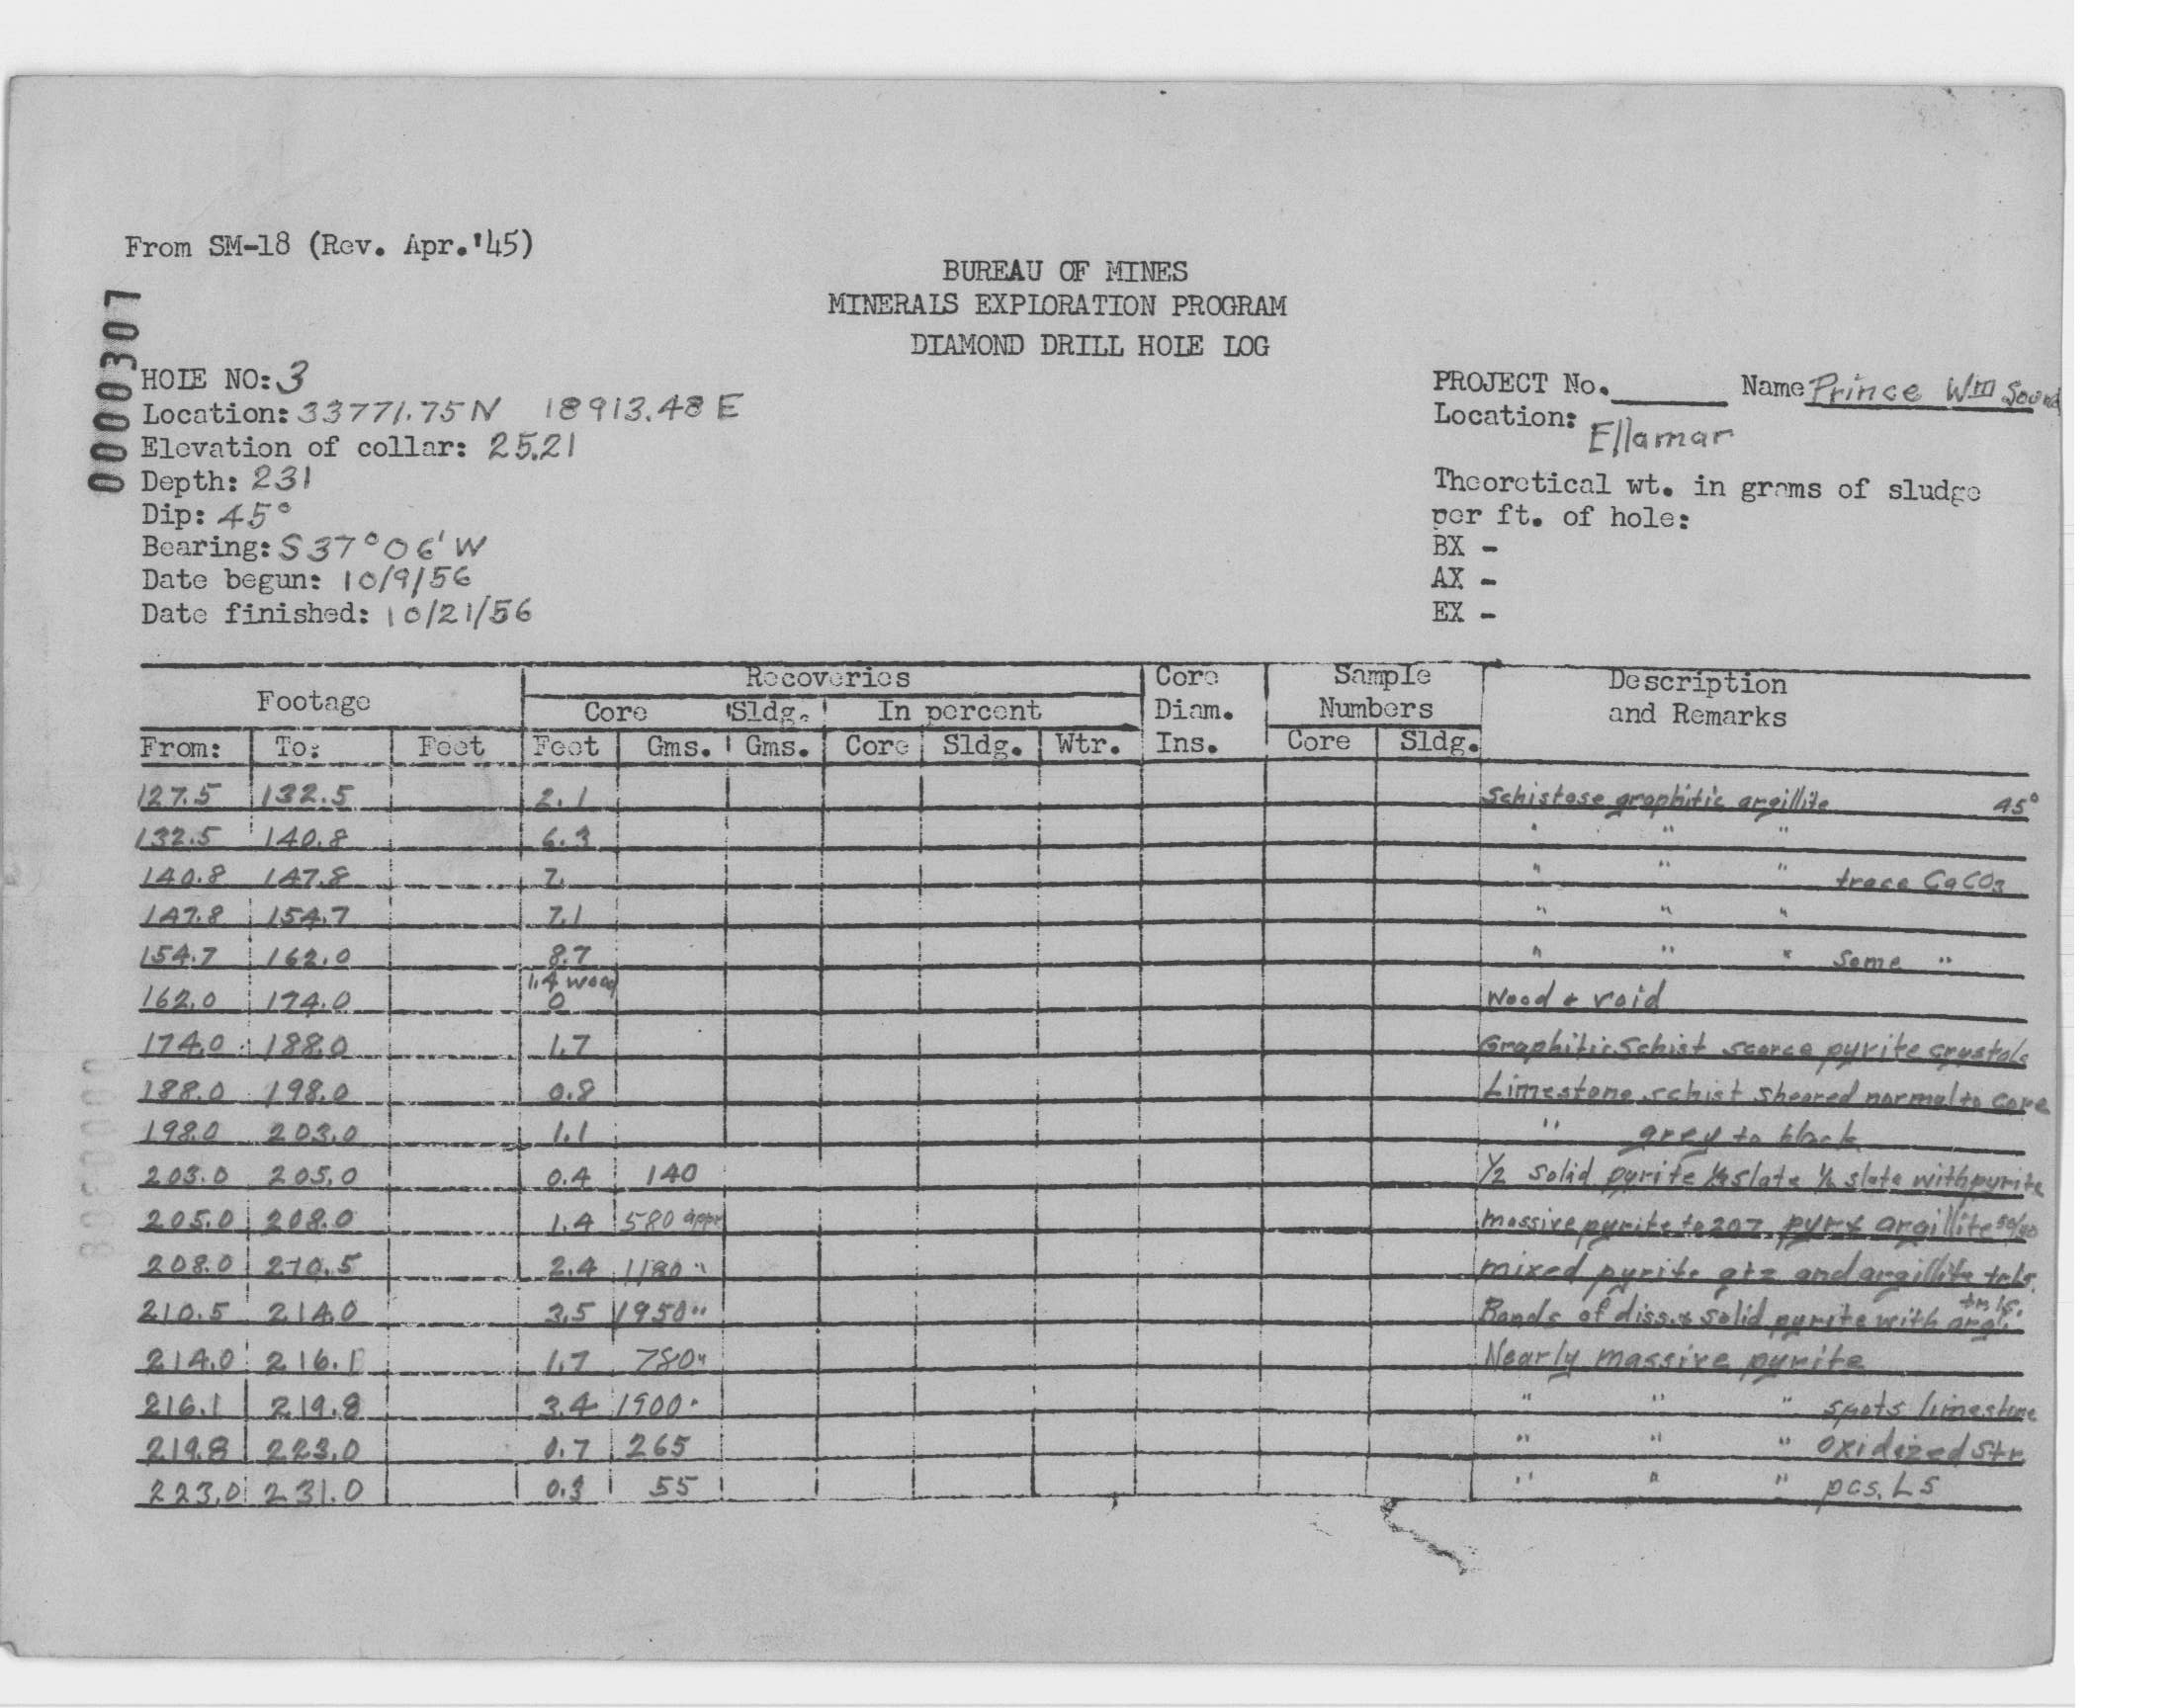 From SM-18 (Rev. Apr.'45)
BUREAU OF MINES
MINERALS EXPLORATION PROGRAM
DIAMOND DRILL HOLE LOG
0000307
HOLE NO: 3
Location: 33771.75 N 18913.48 E
Elevation of collar: 25.21
Depth: 231
Dip: 45°
Bearing: S 37° 06' W
Date begun: 10/9/56
Date finished: 10/21/56
PROJECT No. Name Prince Wm Sound
Location: Ellamar
Theoretical wt. in grams of sludge
per ft. of hole:
BX -
AX -
EX -
Footage Recoveries Core Diam. Ins. Sample Numbers Description and Remarks
Core Sldg. In percent
From: To: Feet Feet Gms. Gms. Core Sldg. Wtr. Core Sldg.
127.5 132.5 2.1 Schistose graphitic argillite 45°
132.5 140.8 6.3 " " "
140.8 147.8 7. " " " trace CaCO3
147.8 154.7 7.1 " " "
154.7 162.0 8.7 " " " Some "
162.0 174.0 1.4 wood 0 Wood & void
174.0 188.0 1.7 Graphitic Schist scarce pyrite crystals
188.0 198.0 0.8 Limestone schist sheared normal to core
198.0 203.0 1.1 " grey to black
203.0 205.0 0.4 140 1/2 solid pyrite slate slate with pyrite
205.0 208.0 1.4 580 appr massive pyrite to 207, pyr & argillite 50/50
208.0 210.5 2.4 1180 " mixed pyrite qtz and argillite tr ls.
210.5 214.0 3.5 1950 " Bands of diss. & solid pyrite with arg. tr ls.
214.0 216.1 1.7 780 " Nearly massive pyrite
216.1 219.8 3.4 1900 " " " " spots limestone
219.8 223.0 0.7 265 " " " oxidized Str
223.0 231.0 0.3 55 " " " pcs. LS